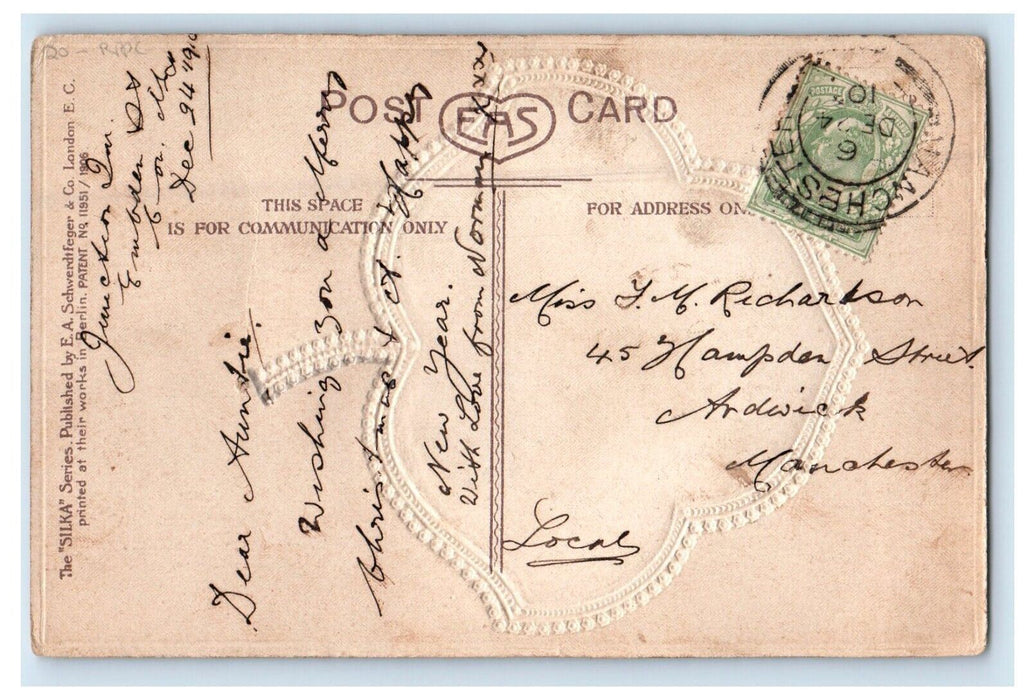 The "SILKA" Series. Published by E. A. Schwerdtfeger & Co. London E. C.
printed at their works in Berlin. PATENT No. 11951/1906
POST EAS CARD
THIS SPACE
IS FOR COMMUNICATION ONLY
FOR ADDRESS ON
Junction Inn.
Embden St
Dec 24 1910
Dear Auntie.
Wishing you a Merry
Christmas & a Happy
New Year.
With Love from Norman xxxx
Miss F. M. Richardson
45 Hampden Street.
Ardwick
Manchester
Local
MANCHESTER
6
DE 24
10
POSTAGE